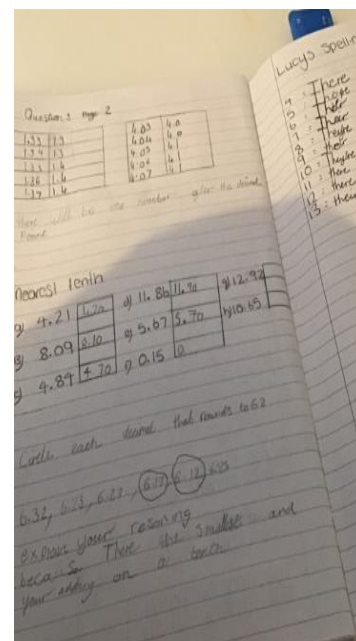 Question 3 page 2
1.33 1.3
1.34 1.3
1.35 1.4
1.36 1.4
1.37 1.4
4.03 4.0
4.04 4.0
4.05 4.1
4.06 4.1
4.07 4.1
There will be one number after the decimal
Point
nearest tenth
a) 4.21 4.20 d) 11.86 11.90 g) 12.92
b) 8.09 8.10 e) 5.67 5.70 h) 10.65
c) 4.84 4.70 f) 0.15 0
Circle each decimal that rounds to 6.2
6.32, 6.23, 6.22, 6.17, 6.12, 6.25
explain your resoning
becaSe There the smallest and
your adding on a tenth
Lucy's Spellin
4. There
5.
6. their
7. their
8. They're
9. their
10. They're
11. there
12. there
13. there